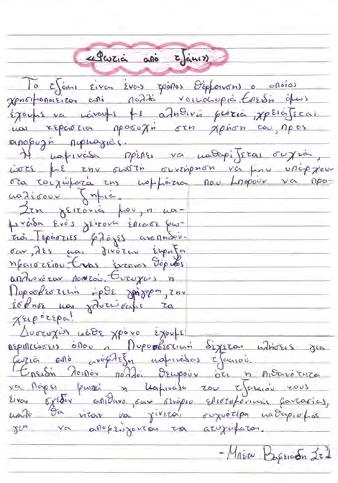 «Φωτιά από τζάκι»
Το τζάκι είναι ένας τρόπος θέρμανσης ο οποίος
χρησιμοποιείται από πολλά νοικοκυριά. Επειδή όμως
έχουμε να κάνουμε με αληθινή φωτιά χρειάζεται
και τεράστια προσοχή στη χρήση του, προς
αποφυγή πυρκαγιάς.
Η καμινάδα πρέπει να καθαρίζεται συχνά,
ώστε με την σωστή συντήρηση να μην υπάρχουν
στα τοιχώματά της κομμάτια που μπορούν να προ-
καλέσουν ζημιά.
Στη γειτονιά μου, η κα-
μινάδα ενός γείτονα έπιασε φω-
τιά. Τεράστιες φλόγες αναπηδού-
σαν, λες και γινόταν έκρηξη
ηφαιστείου. Ένας έντονος θόρυβος
απλωνόταν παντού. Ευτυχώς η
Πυροσβεστική ήρθε γρήγορα, την
έσβησε και γλυτώσαμε τα
χειρότερα!
Δυστυχώς κάθε χρόνο έχουμε
περιπτώσεις όπου η Πυροσβεστική δέχεται κλήσεις για
φωτιά από ανάφλεξη καμινάδας τζακιού.
Επειδή λοιπόν πολλοί θεωρούν ότι η πιθανότητα
να πάρει φωτιά η καμινάδα του τζακιού τους
είναι σχεδόν απίθανο, σαν σενάριο επιστημονικής φαντασίας,
καλό θα ήταν να γίνεται συχνότερα καθαρισμός
για να αποφεύγονται τα ατυχήματα.
Στ2